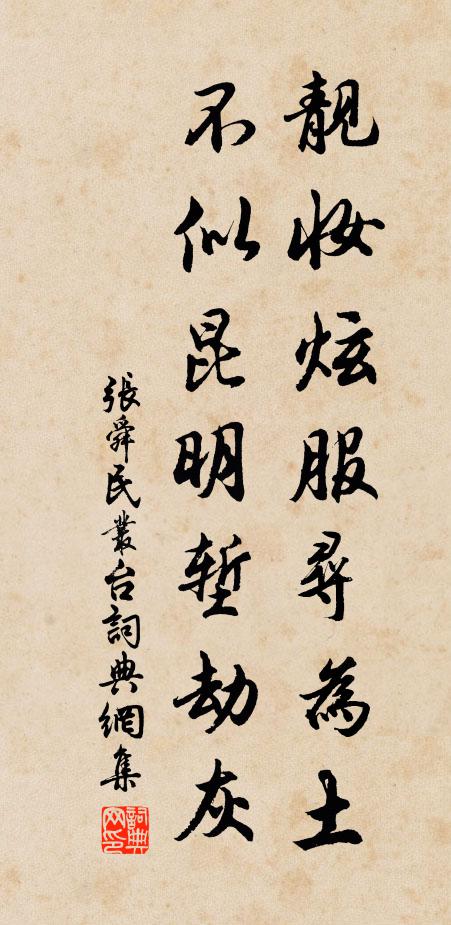 靚妝炫服尋為土
不似昆明塹劫灰
張舜民叢台詞典網集
詞典网印